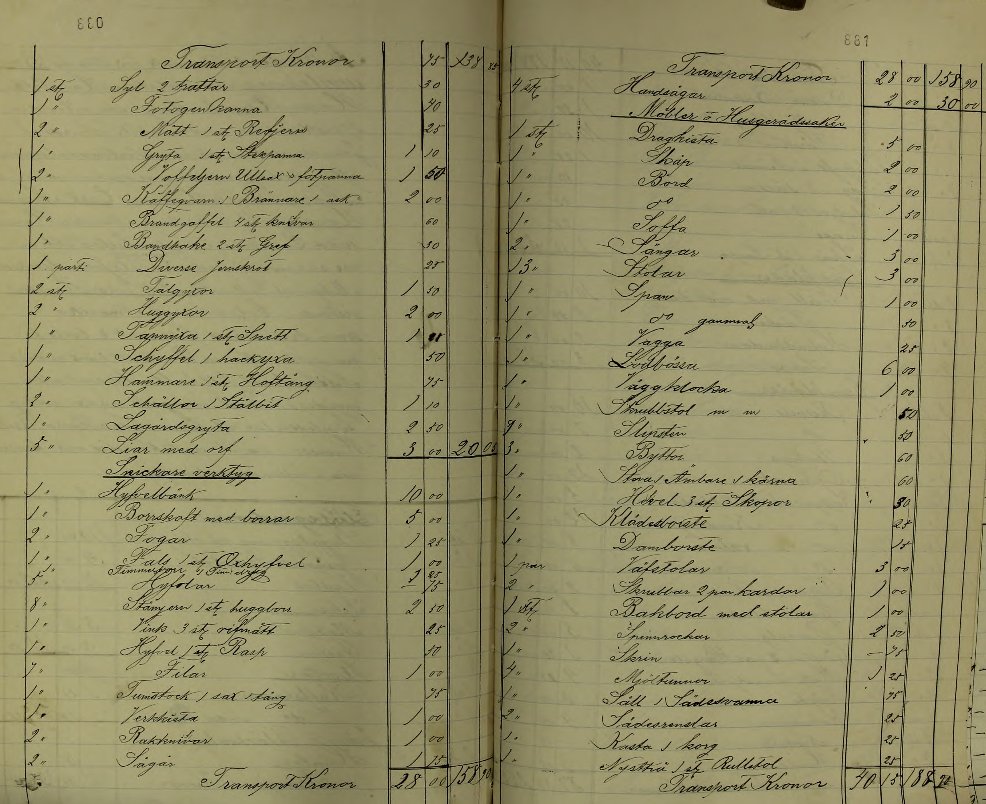 880
Transport Kronor 75 138 85
1 st Syl 2 trattar 30
1 " Fotogenkanna 40
2 " Mått 1 st Refjern 25
1 " Gryta 1 st Stekpanna 1 10
2 " Voffeljern Ullsax o fotpanna 1 50
1 " Kaffeqvarn 1 Brännare 1 ask 2 00
1 " Brandgaffel 4 st knivar 60
1 " Bandhake 2 st Gref 30
1 parti Diverse Jernskrot 25
2 st Tälgyxor 1 50
2 " Huggyxor 2 00
1 " Täpnyxa 1 st Spett 1
1 " Schyffel 1 hackyxa 50
1 " Hammare 1 st Hoftång 75
2 " Schällor 1 Stålbit 1 10
1 " Lagårdsgryta 2 50
5 " Liar med orf 3 00 20 05
Snickare verktyg
1 " Hyfvelbänk 10 00
1 " Borrskaft med borrar 5 00
2 " Fogar 1 25
1 " Fals 1 st Oxhyfvel 1 00
Hyflar 75
8 " Stämjern 1 st huggbon 2 50
1 " Vink 3 st ritmått 25
1 " Hyfvel 1 st Rasp 50
7 " Filar 1 00
1 " Tumstock 1 sax 1 tång 75
1 " Verkkista 1 00
2 " Rakknivar 1 00
2 " Sågar 1 75
Transport Kronor 28 00 158 90
881
Transport Kronor 28 00 158 90
4 st Handsågar 2 00 30 00
Möbler o Husgerådssaker
1 st Dragkista 5 00
1 " Skåp 2 00
1 " Bord 2 00
1 " do 1 50
1 " Soffa 1 00
2 " Sängar 3 00
13 " Stolar 3 00
1 " Spar 1 00
1 " do gammal 50
1 " Vagga 25
1 " Lodbössa 6 00
1 " Väggklocka 1 00
1 " Skrubbstol m m 50
1 " Slipsten 50
3 " Byttor 60
1 " Stora 1 Ämbare 1 kärna 60
1 " Hövel 3 st Skopor 30
1 " Klädesborste 25
1 " Damborste 15
1 par Väfstolar 3 00
2 " Skrubbar 2 par kardor 1 00
1 st Bakbord med stolar 1 00
2 " Spinnrockar 2 50
1 " Skrin 75
4 " Mjöltunnor 1 25
1 " Såll 1 Sädesvanna 75
2 " Sädesrenslar 25
1 " Kasta 1 korg 25
1 " Nystträ 1 st Rullstol 25
Transport Kronor 40 15 188 90